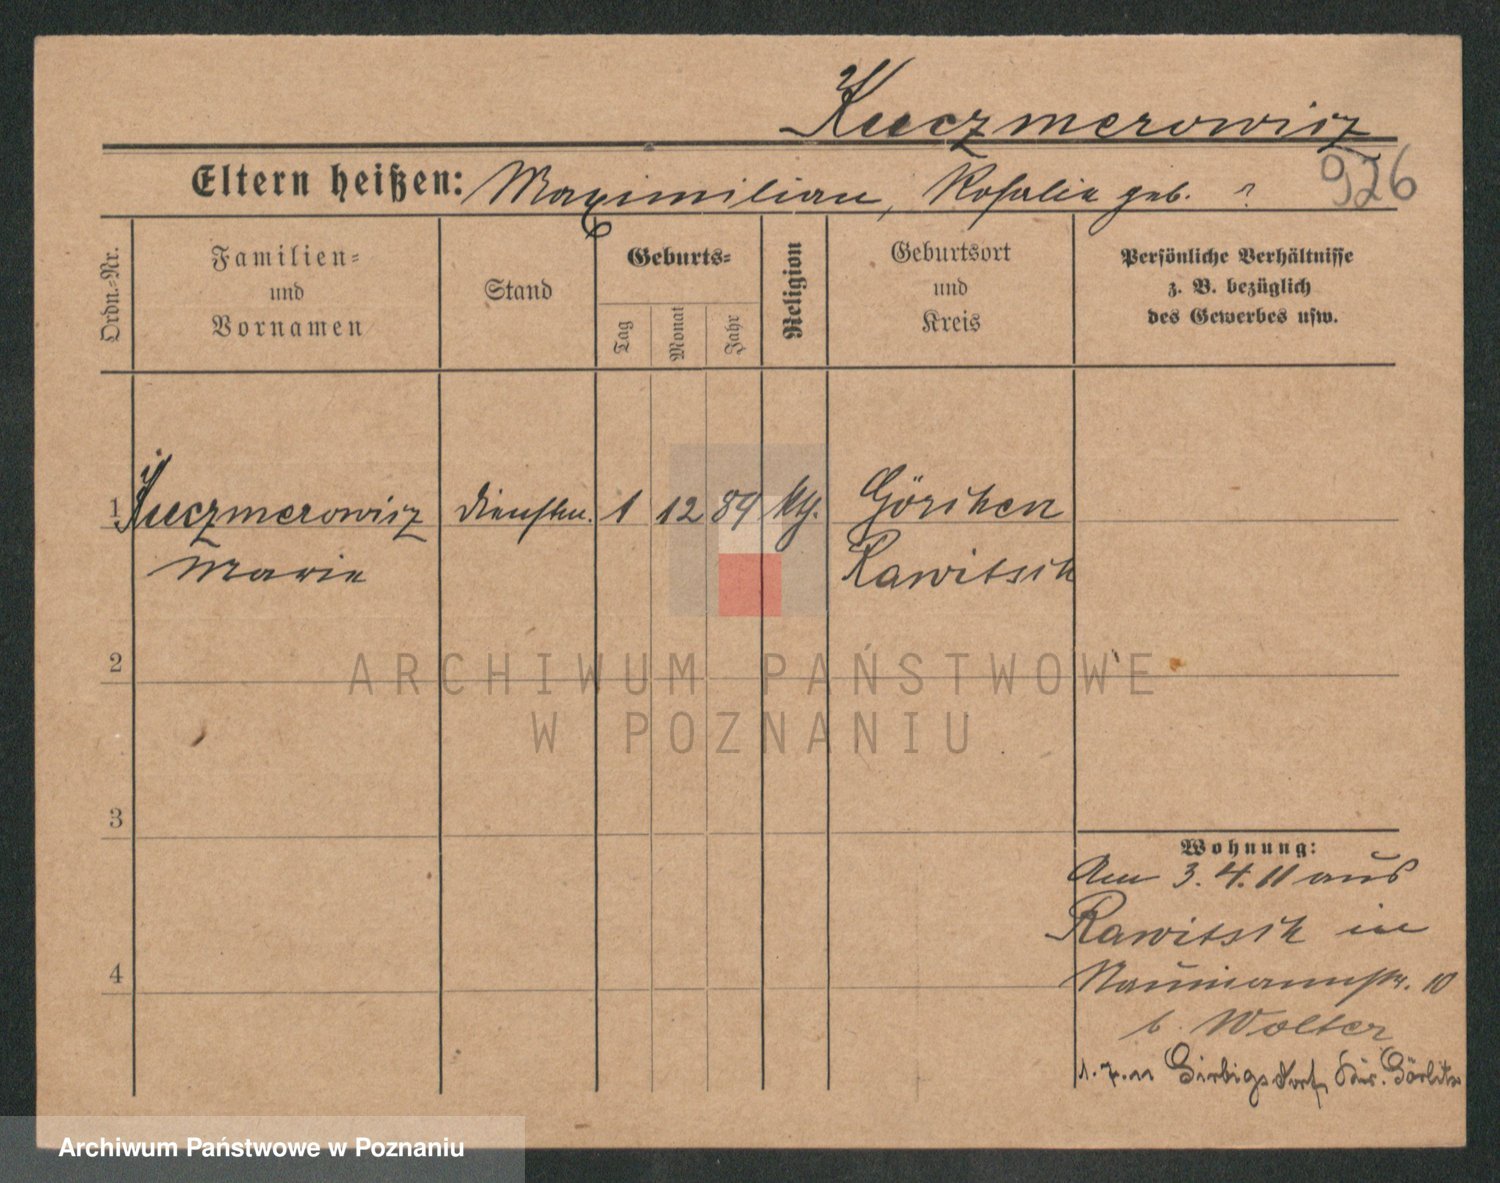 Kuczmerowicz
Eltern heißen: Maximilian, Rosalie geb. ?
926
Ordn.-Nr.
Familien-
und
Vornamen
Stand
Geburts-
Tag
Monat
Jahr
Religion
Geburtsort
und
Kreis
Persönliche Verhältnisse
z. B. bezüglich
des Gewerbes usw.
1 Kuczmerowicz Dienstm. 1 12 89 kth. Görchen
Marie Rawitsch
2
ARCHIWUM PAŃSTWOWE
W POZNANIU
3
Wohnung:
Am 3.4.11 aus
Rawitsch in
4
Naumannstr. 10
b. Wolter
1.7.11 Girbigsdorf, Kr. Görlitz
Archiwum Państwowe w Poznaniu